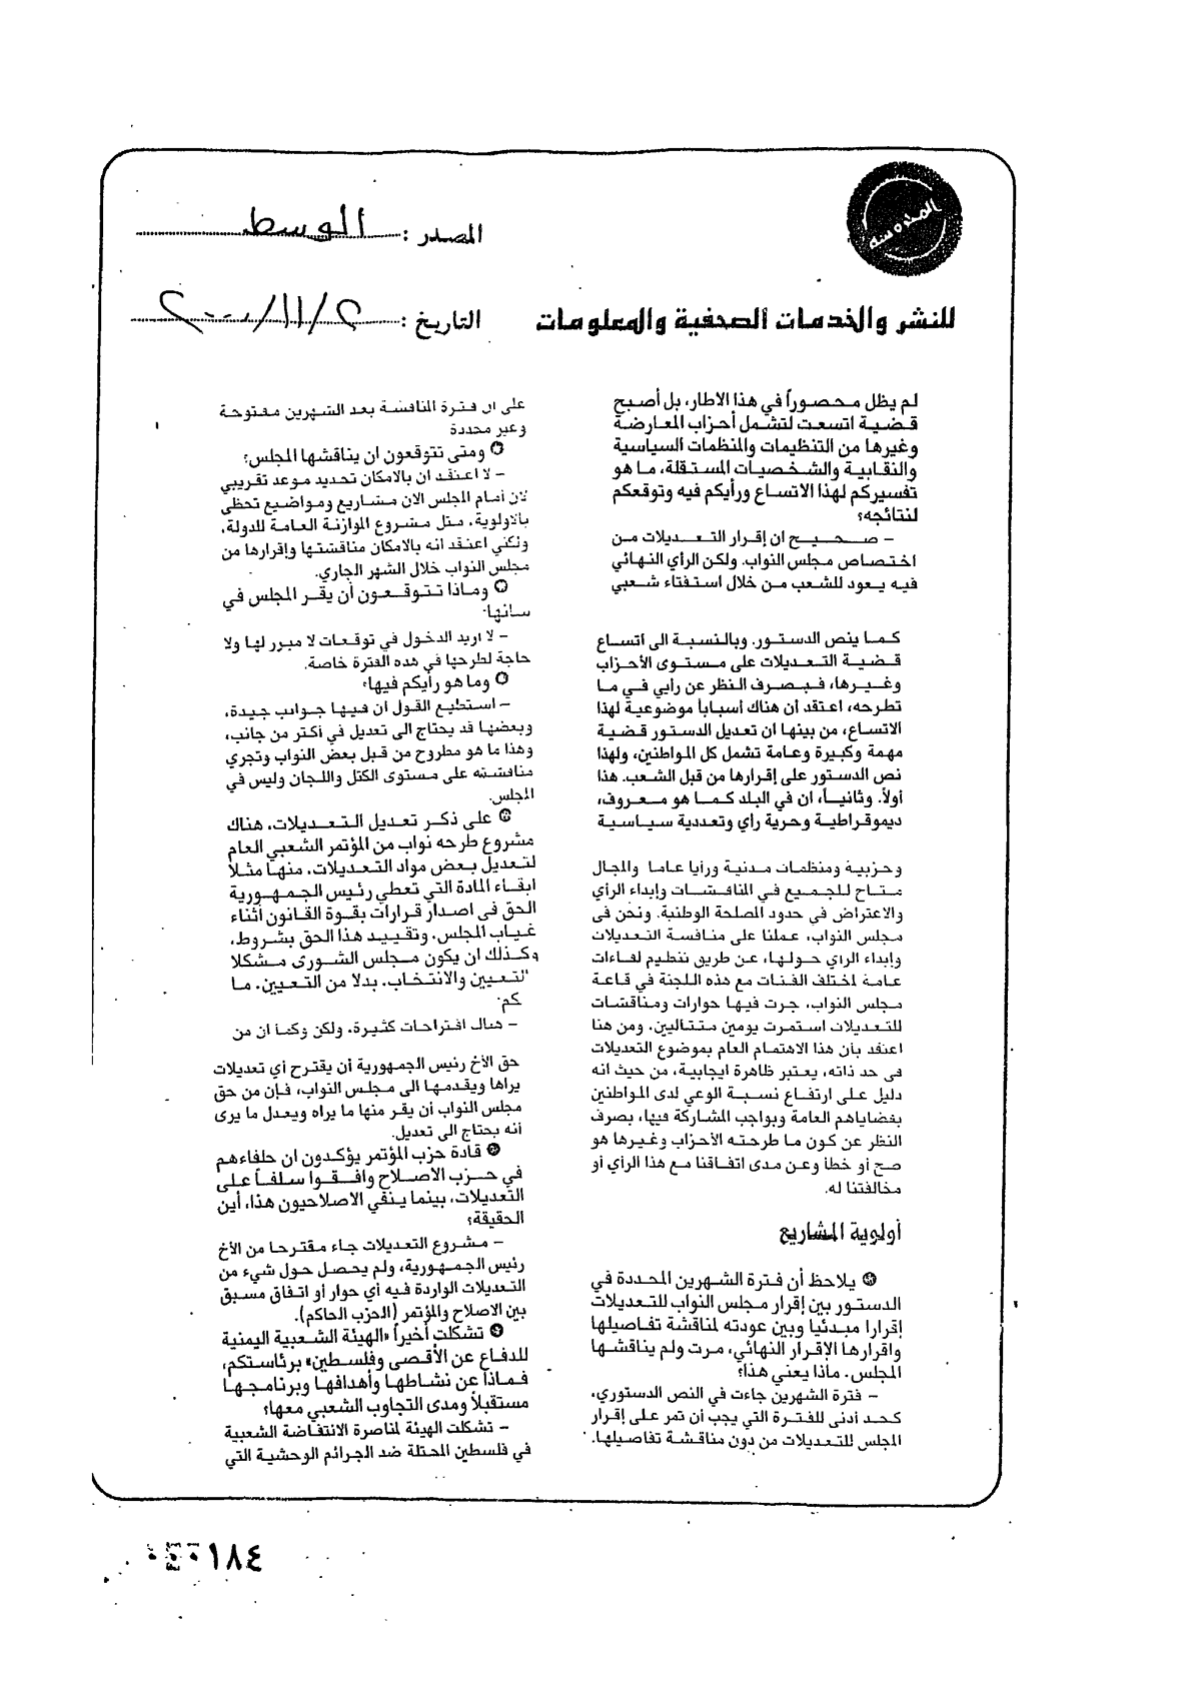 المصدر : الوسط
للنشر والخدمات الصحفية والمعلومات
التاريخ : ٢/١١/٢٠٠٠
لم يظل محصوراً في هذا الاطار، بل أصبح
قضية اتسعت لتشمل أحزاب المعارضة
وغيرها من التنظيمات والمنظمات السياسية
والنقابية والشخصيات المستقلة، ما هو
تفسيركم لهذا الاتساع ورأيكم فيه وتوقعكم
لنتائجه؟
– صحيح ان إقرار التعديلات من
اختصاص مجلس النواب. ولكن الرأي النهائي
فيه يعود للشعب من خلال استفتاء شعبي
كما ينص الدستور. وبالنسبة الى اتساع
قضية التعديلات على مستوى الأحزاب
وغيرها، فبصرف النظر عن رأيي في ما
تطرحه، اعتقد ان هناك أسباباً موضوعية لهذا
الاتساع، من بينها ان تعديل الدستور قضية
مهمة وكبيرة وعامة تشمل كل المواطنين، ولهذا
نص الدستور على إقرارها من قبل الشعب. هذا
أولاً. وثانياً، ان في البلد كما هو معروف،
ديموقراطية وحرية رأي وتعددية سياسية
وحزبية ومنظمات مدنية ورأيا عاما والمجال
متاح للجميع في المناقشات وإبداء الرأي
والاعتراض في حدود المصلحة الوطنية. ونحن في
مجلس النواب، عملنا على مناقشة التعديلات
وإبداء الرأي حولها، عن طريق تنظيم لقاءات
عامة لمختلف الفئات مع هذه اللجنة في قاعة
مجلس النواب، جرت فيها حوارات ومناقشات
للتعديلات استمرت يومين متتاليين. ومن هنا
اعتقد بأن هذا الاهتمام العام بموضوع التعديلات
في حد ذاته، يعتبر ظاهرة ايجابية، من حيث انه
دليل على ارتفاع نسبة الوعي لدى المواطنين
بقضاياهم العامة وبواجب المشاركة فيها، بصرف
النظر عن كون ما طرحته الأحزاب وغيرها هو
صح أو خطأ وعن مدى اتفاقنا مع هذا الرأي أو
مخالفتنا له.
أولوية المشاريع
يلاحظ أن فترة الشهرين المحددة في
الدستور بين إقرار مجلس النواب للتعديلات
إقرارا مبدئيا وبين عودته لمناقشة تفاصيلها
واقرارها الإقرار النهائي، مرت ولم يناقشها
المجلس. ماذا يعني هذا؟
– فترة الشهرين جاءت في النص الدستوري،
كحد أدنى للفترة التي يجب أن تمر على إقرار
المجلس للتعديلات من دون مناقشة تفاصيلها.
على ان فترة المناقشة بعد الشهرين مفتوحة
وغير محددة
ومتى تتوقعون ان يناقشها المجلس؟
– لا اعتقد ان بالامكان تحديد موعد تقريبي
لان أمام المجلس الان مشاريع ومواضيع تحظى
بالاولوية، مثل مشروع الموازنة العامة للدولة،
ولكني اعتقد انه بالامكان مناقشتها وإقرارها من
مجلس النواب خلال الشهر الجاري.
وماذا تتوقعون أن يقر المجلس في
شانها؟
– لا اريد الدخول في توقعات لا مبرر لها ولا
حاجة لطرحها في هذه الفترة خاصة.
وما هو رأيكم فيها؟
– استطيع القول ان فيها جوانب جيدة،
وبعضها قد يحتاج الى تعديل في أكثر من جانب،
وهذا ما هو مطروح من قبل بعض النواب وتجري
مناقشته على مستوى الكتل واللجان وليس في
المجلس.
على ذكر تعديل التعديلات، هناك
مشروع طرحه نواب من المؤتمر الشعبي العام
لتعديل بعض مواد التعديلات، منها مثلا
ابقاء المادة التي تعطي رئيس الجمهورية
الحق في اصدار قرارات بقوة القانون أثناء
غياب المجلس، وتقييد هذا الحق بشروط،
وكذلك ان يكون مجلس الشورى مشكلا
بالتعيين والانتخاب، بدلا من التعيين. ما
– هناك اقتراحات كثيرة، ولكن وكما ان من
حق الأخ رئيس الجمهورية أن يقترح أي تعديلات
يراها ويقدمها الى مجلس النواب، فإن من حق
مجلس النواب أن يقر منها ما يراه ويعدل ما يرى
أنه يحتاج الى تعديل.
قادة حزب المؤتمر يؤكدون ان حلفاءهم
في حزب الاصلاح وافقوا سلفاً على
التعديلات، بينما ينفي الاصلاحيون هذا، أين
الحقيقة؟
– مشروع التعديلات جاء مقترحا من الأخ
رئيس الجمهورية، ولم يحصل حول شيء من
التعديلات الواردة فيه أي حوار أو اتفاق مسبق
بين الاصلاح والمؤتمر (الحزب الحاكم).
تشكلت أخيراً «الهيئة الشعبية اليمنية
للدفاع عن الأقصى وفلسطين» برئاستكم،
فماذا عن نشاطها وأهدافها وبرنامجها
مستقبلاً ومدى التجاوب الشعبي معها؟
– تشكلت الهيئة لمناصرة الانتفاضة الشعبية
في فلسطين المحتلة ضد الجرائم الوحشية التي
١٨٤